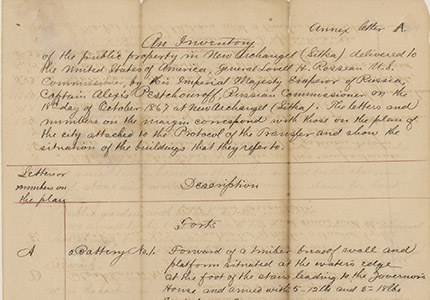 Annex letter A
An Inventory
of the public property in New Archangel (Sitka) delivered to
the United States of America, General Lovell H. Rosseau U.S.
Commissioner, by His Imperial Majesty Emperor of Russia,
Captain Alexis Pestchouroff, Russian Commissioner on the
18th day of October 1867 at New Archangel (Sitka). The letters and
numbers on the margin correspond with those on the plan of
the city attached to the Protocol of the Transfer and show the
situation of the buildings that they refer to.
Letters or
numbers on
the plan
Description
Forts
A
Battery No. 1.
Forward of a timber breast wall and
platform situated at the water's edge
at the foot of the stairs leading to the Governor's
House and armed with 5-12lb and 5-18lbs